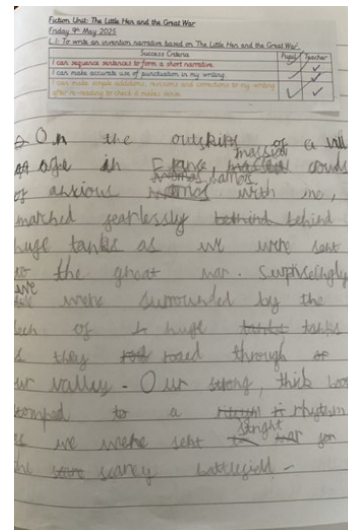 Fiction Unit: The Little Hen and the Great War
Friday 9th May 2025
L.I: To write an invention narrative based on The Little Hen and the Great War.
Success Criteria Pupil Teacher
I can sequence sentences to form a short narrative.
I can make accurate use of punctuation in my writing.
I can make simple additions, revisions and corrections to my writing
after re-reading to check it makes sense
On the outskirts of a vill
age in France, massive
of anxious with me,
marched fearlessly behind behind
huge tanks as we were sent
to the great war. Surpriselingly
we were surrounded by the
of huge tanks tanks
they roared through
ur valley. Our strong, thick boo
tomped to a rhytem
we were sent straght for
he scarey battlefield.